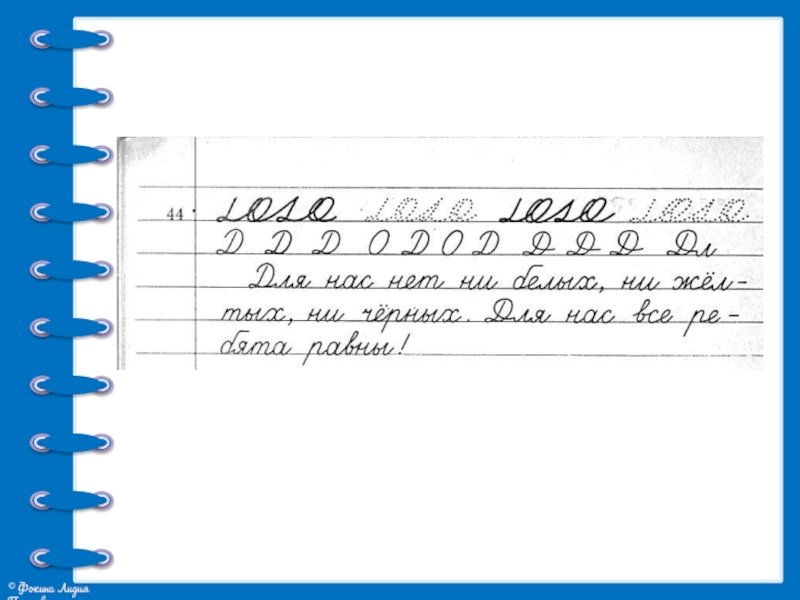 44.
Д Д Д О Д О Д Д Д Д Дл
Для нас нет ни белых, ни жёл-
тых, ни чёрных. Для нас все ре-
бята равны!
© Фокина Лидия